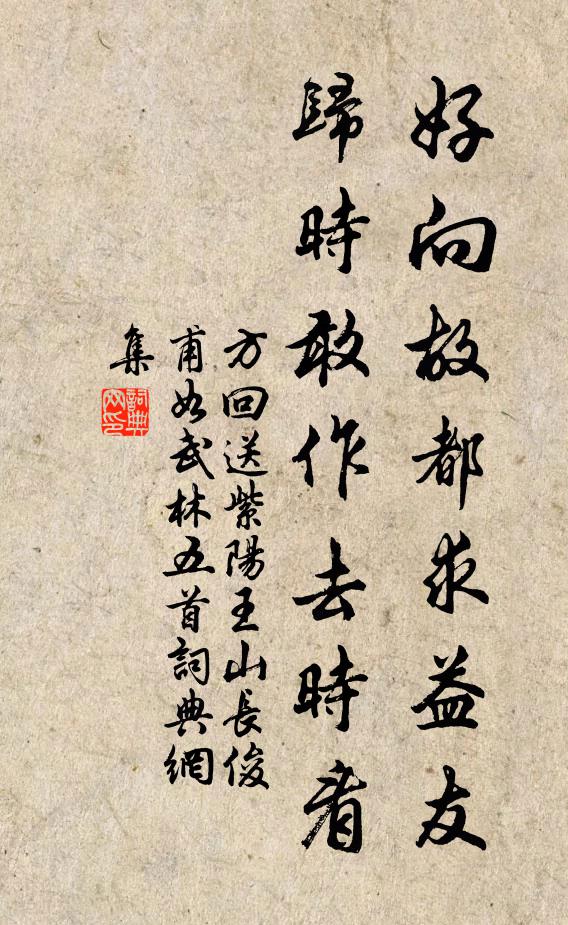 好向故都求益友
歸時敢作去時看
方回送紫陽王山長俊
甫如武林五首詞典網
集
詞典網印